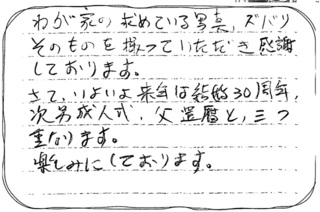 わが家の求めている写真、ズバリ
そのものを撮っていただき感謝
しております。
さて、いよいよ来年は結婚30周年、
次男成人式、父還暦と、三つ
重なります。
楽しみにしております。